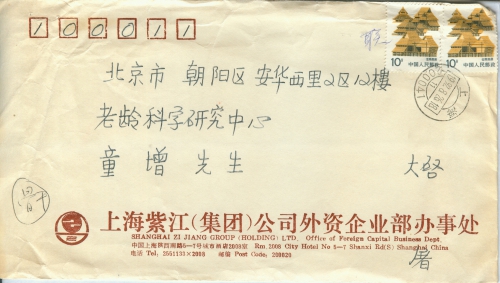 100011
联
10分 中国人民邮政
10分 中国人民邮政
北京市 朝阳区 安华西里2区12楼
老龄科学研究中心
童增 先生 大启
上海紫江(集团)公司外资企业部办事处
SHANGHAI ZI JIANG GROUP (HOLDING) LTD. Office of Foreign Capital Business Dept.
中国上海陕西南路5-7号城市酒店2008室 Rm.2008 City Hotel No 5-7 Shanxi Rd(S) Shanghai China
电话 Tel, 2551133×2008 邮编 Post Code, 200020
屠